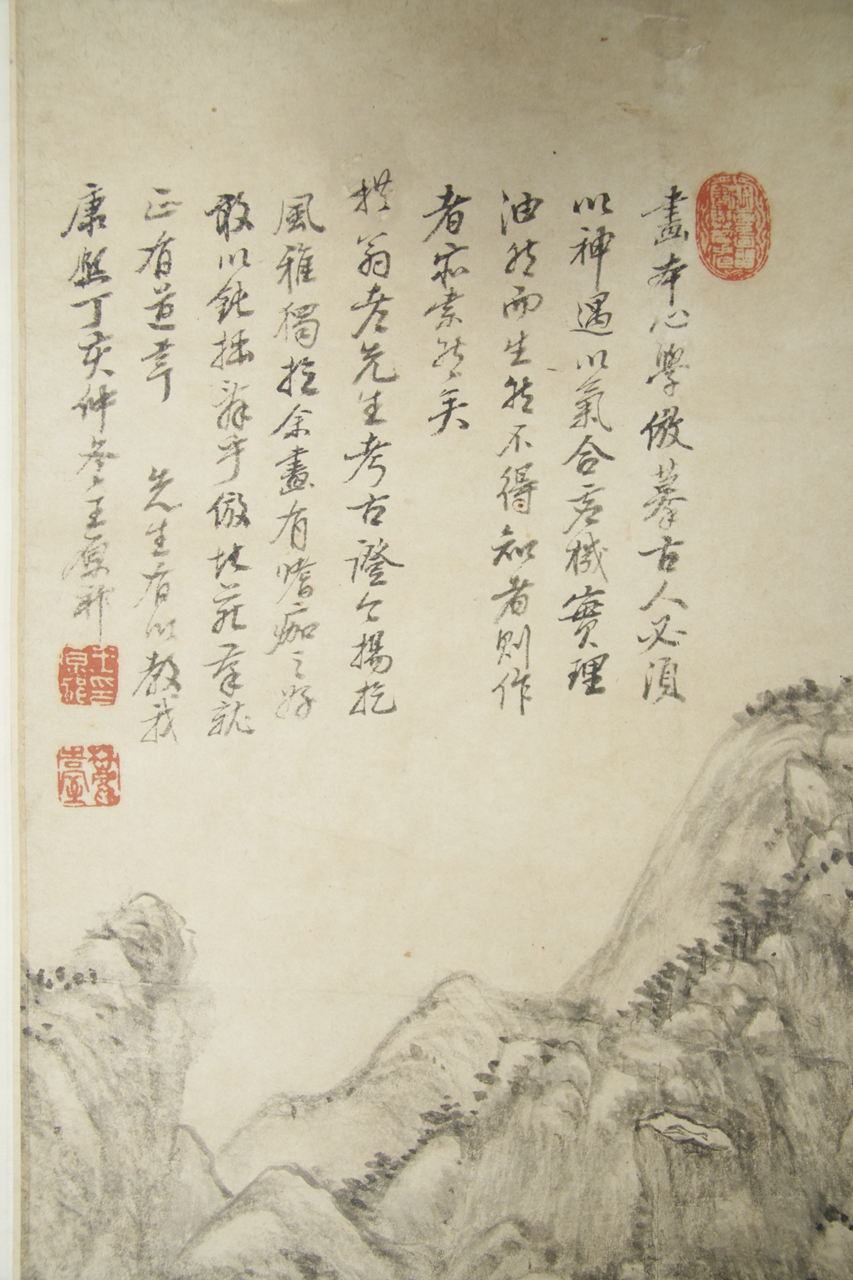 畫本心學倣摹古人必須
以神遇以氣合虛機實理
油然而生然不得知者則作
者亦索然矣
拱翁老先生考古證今揚扢
風雅獨於余畫有嗜痂之好
敢以鈍拙辭乎倣大癡筆就
正有道幸 先生有以教我
康熙丁亥仲冬王原祁
王原祁印
麓臺